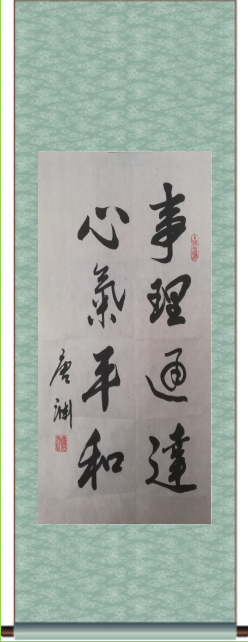 事理通達
心氣平和
唐渊